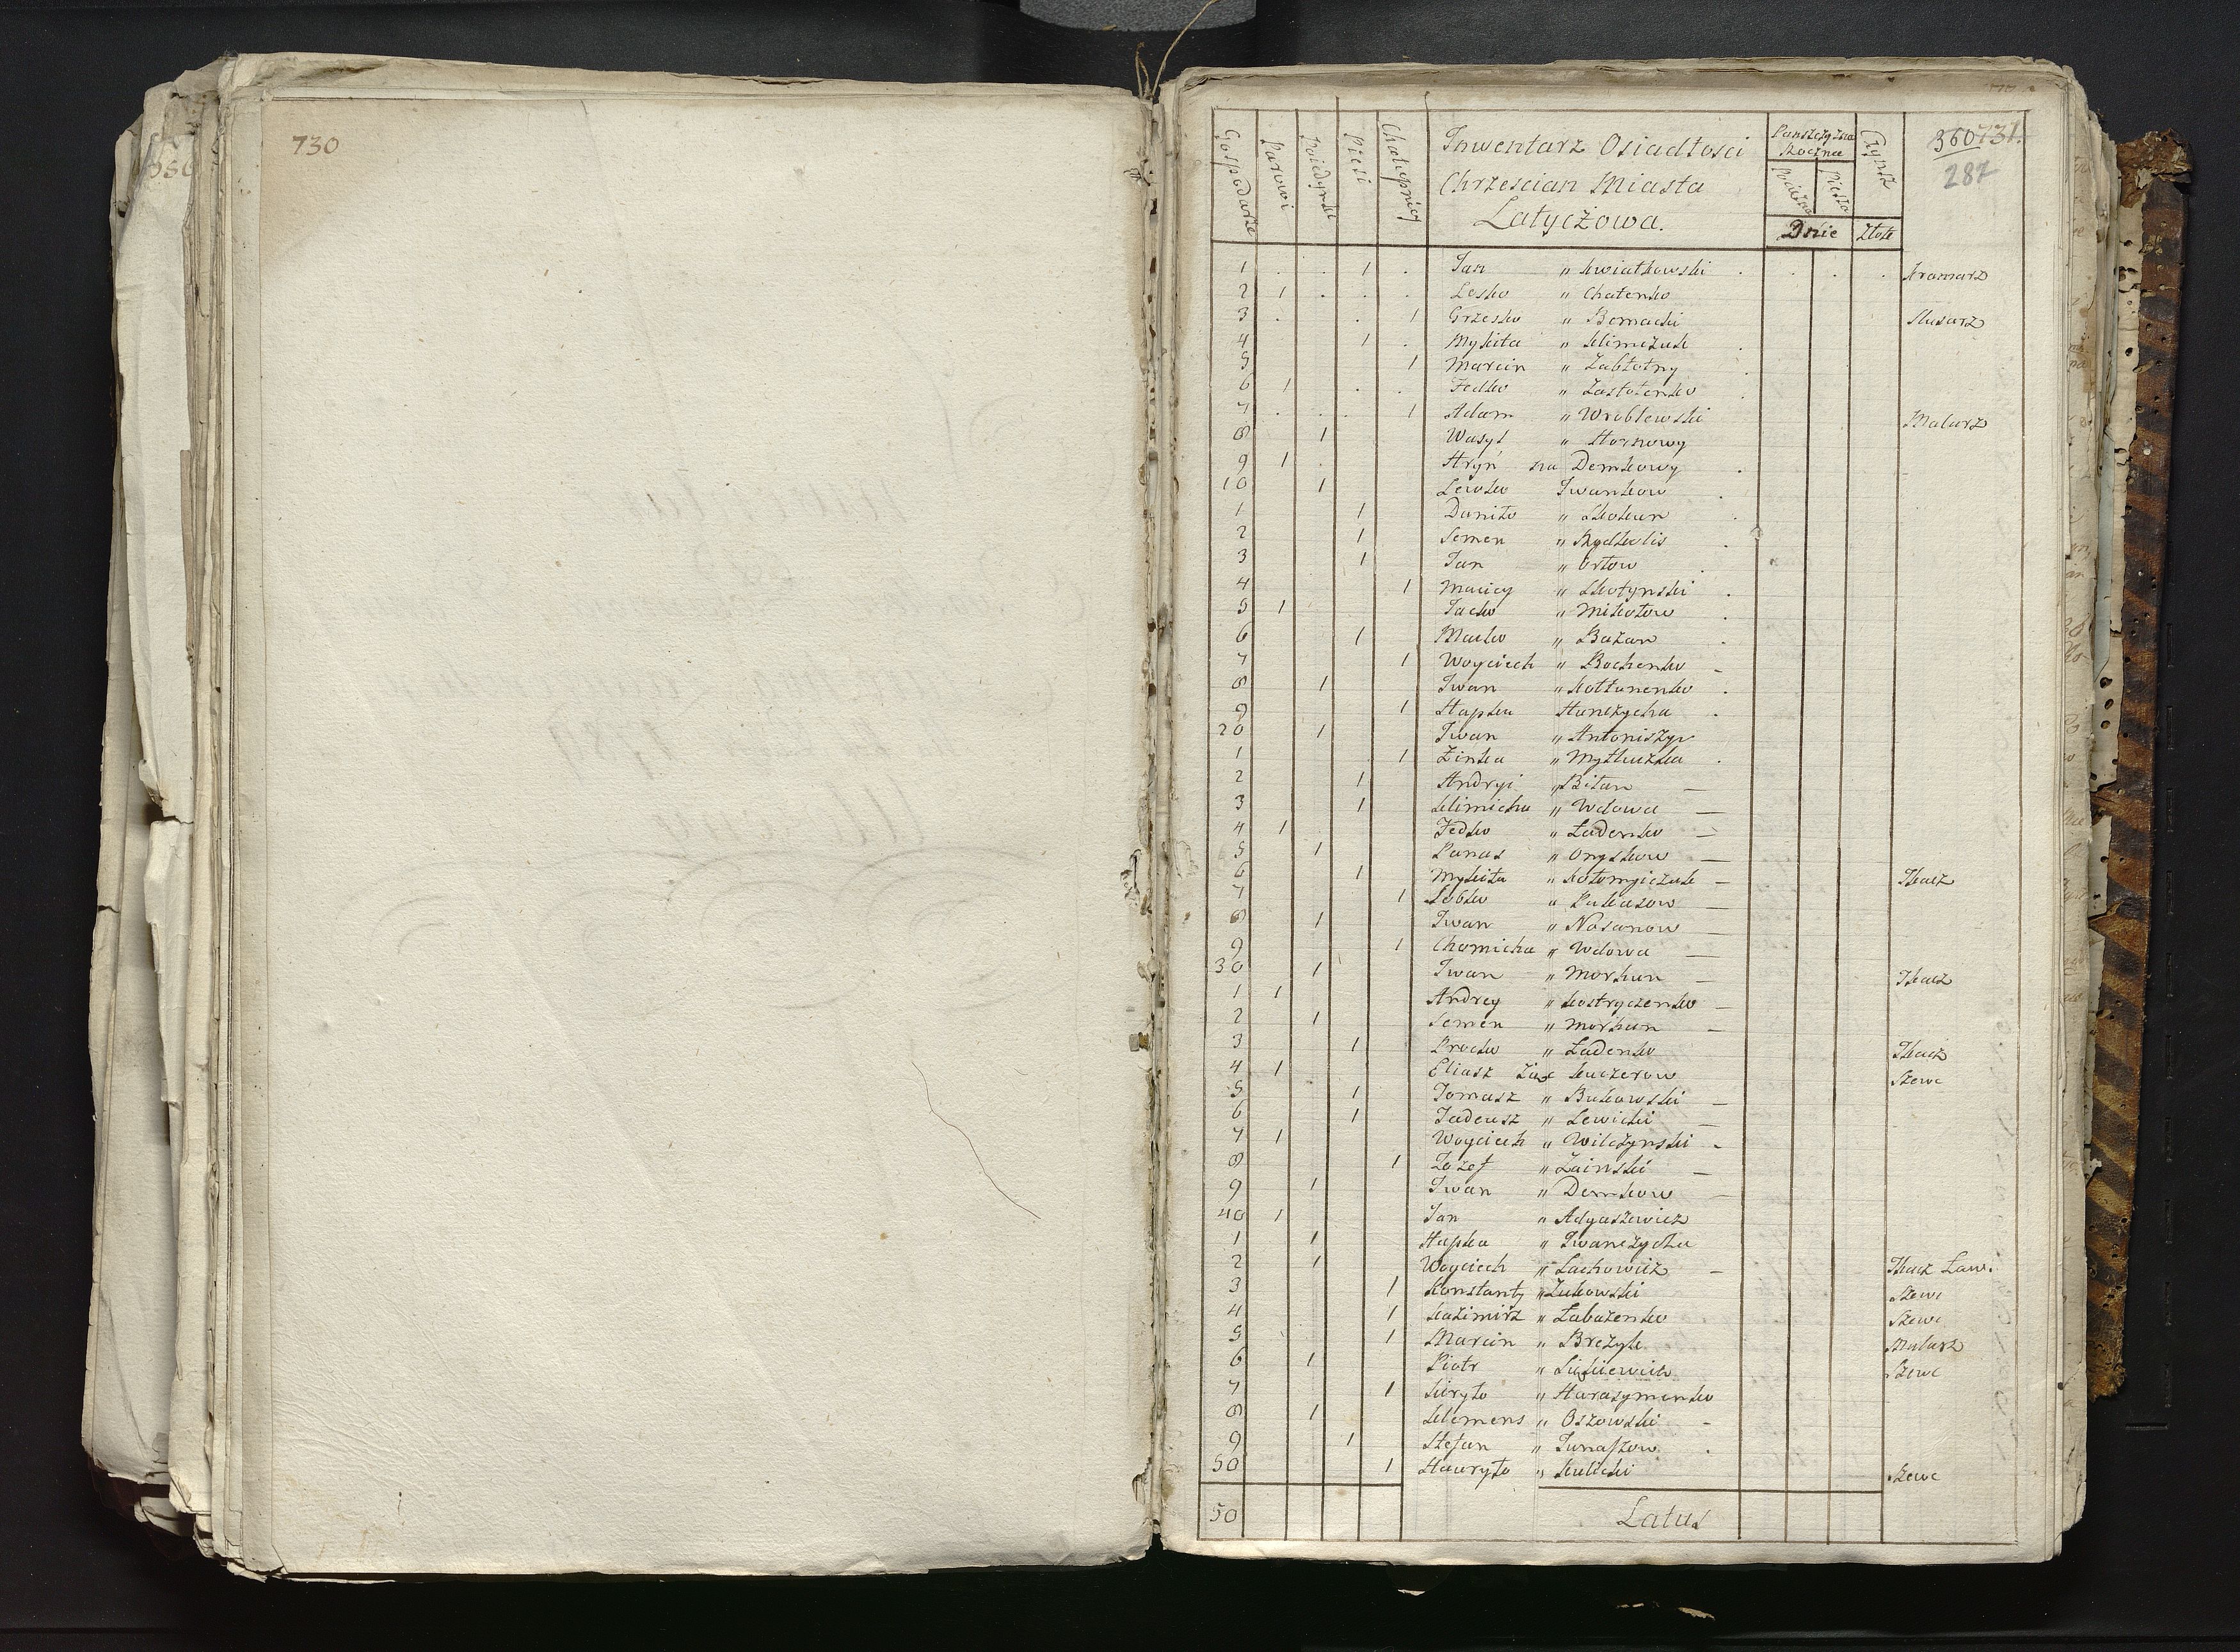 730
360 731.
287
Gospodarze Parowi Poiedynki Piesi Chałupnicy
Inwentarz Osiadłosci
Chrzescian Miasta
Latyczowa.
Panszczyzna Roczna
Pociężna Piesza
Czynsz
Dnie Złote
1 1 Jan " Kwiatkowski Kramarz
2 1 Lesko " Chatenko
3 1 Grzesko " Bernacki Slusarz
4 1 Mykita " Klimczuk
5 1 Marcin " Zabłotny
6 1 Fedko " Zastotenko
7 1 Adam " Wroblewski Malarz
8 1 Wasyl " Hornowy
9 1 Hryn na Demkowy
10 1 Lewko Iwankow
1 1 Daniło " Skokun
2 1 Semen " Rydkolis
3 1 Jan " Orłow
4 1 Maciey " Skotynski
5 1 Jacko " Mikołow
6 1 Macko " Bazan
7 1 Woyciech " Bochenko
8 1 Iwan " Kołtunenko
9 1 Hapka Hanczycha
20 1 Iwan " Antoniszyn
1 1 Zinka " Mytkuzka
2 1 Andryi " Bilan
3 1 Klimicha " Wdowa
4 1 Fedko " Ladenko
5 1 Panas " Onyskow
6 1 Mykita " Kołomyiczuk Tkacz
7 1 Sobko " Pukasow
8 1 Iwan " Nosanow
9 1 Chomicha " Wdowa
30 1 Iwan " Morhun Tkacz
1 1 Andrey " Kostryczenko
2 1 Semen " Morhun
3 1 Procko " Ladenko Tkacz
4 1 Eliasz Zięc Kuczerow Szewc
5 1 Tomasz " Bukowski
6 1 Tadeusz " Lewicki
7 1 Woyciech " Wilczynski
8 1 Jozef " Zainski
9 1 Iwan " Demkow
40 1 Jan " Adyaszewicz
1 1 Hapka " Iwanczycha
2 1 Woyciech " Lachowicz Tkacz Law:
3 1 Konstanty " Zukowski Szewc
4 1 Kazimirz " Labazenko Szewc
5 1 Marcin " Brezyk Malarz
6 1 Piotr Szewc
7 1 Kiryło " Harasymenko
8 1 Klemens " Oszowski
9 1 Stefan " Junaszow
50 1 Hawryło " Kulicki Szewc
50 Latus